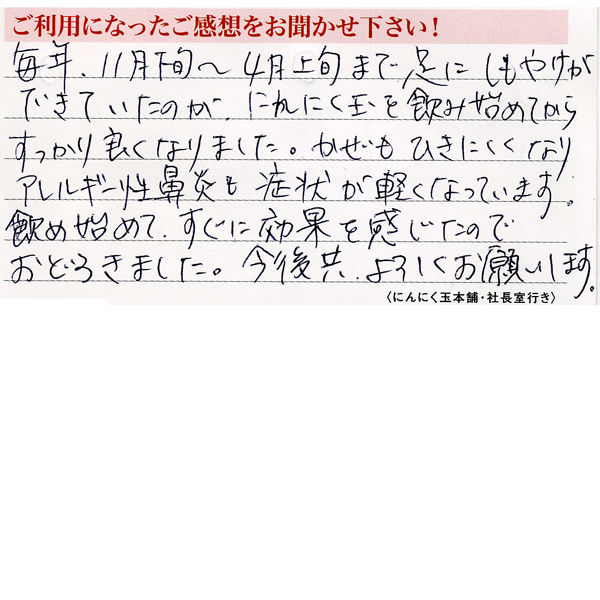 ご利用になったご感想をお聞かせ下さい!
毎年、11月下旬〜4月上旬まで足にしもやけが
できていたのが、にんにく玉を飲み始めてから
すっかり良くなりました。かぜもひきにくくなり
アレルギー性鼻炎も症状が軽くなっています。
飲め始めて、すぐに効果を感じたので
おどろきました。今後共、よろしくお願いします。
〈にんにく玉本舗・社長室行き〉